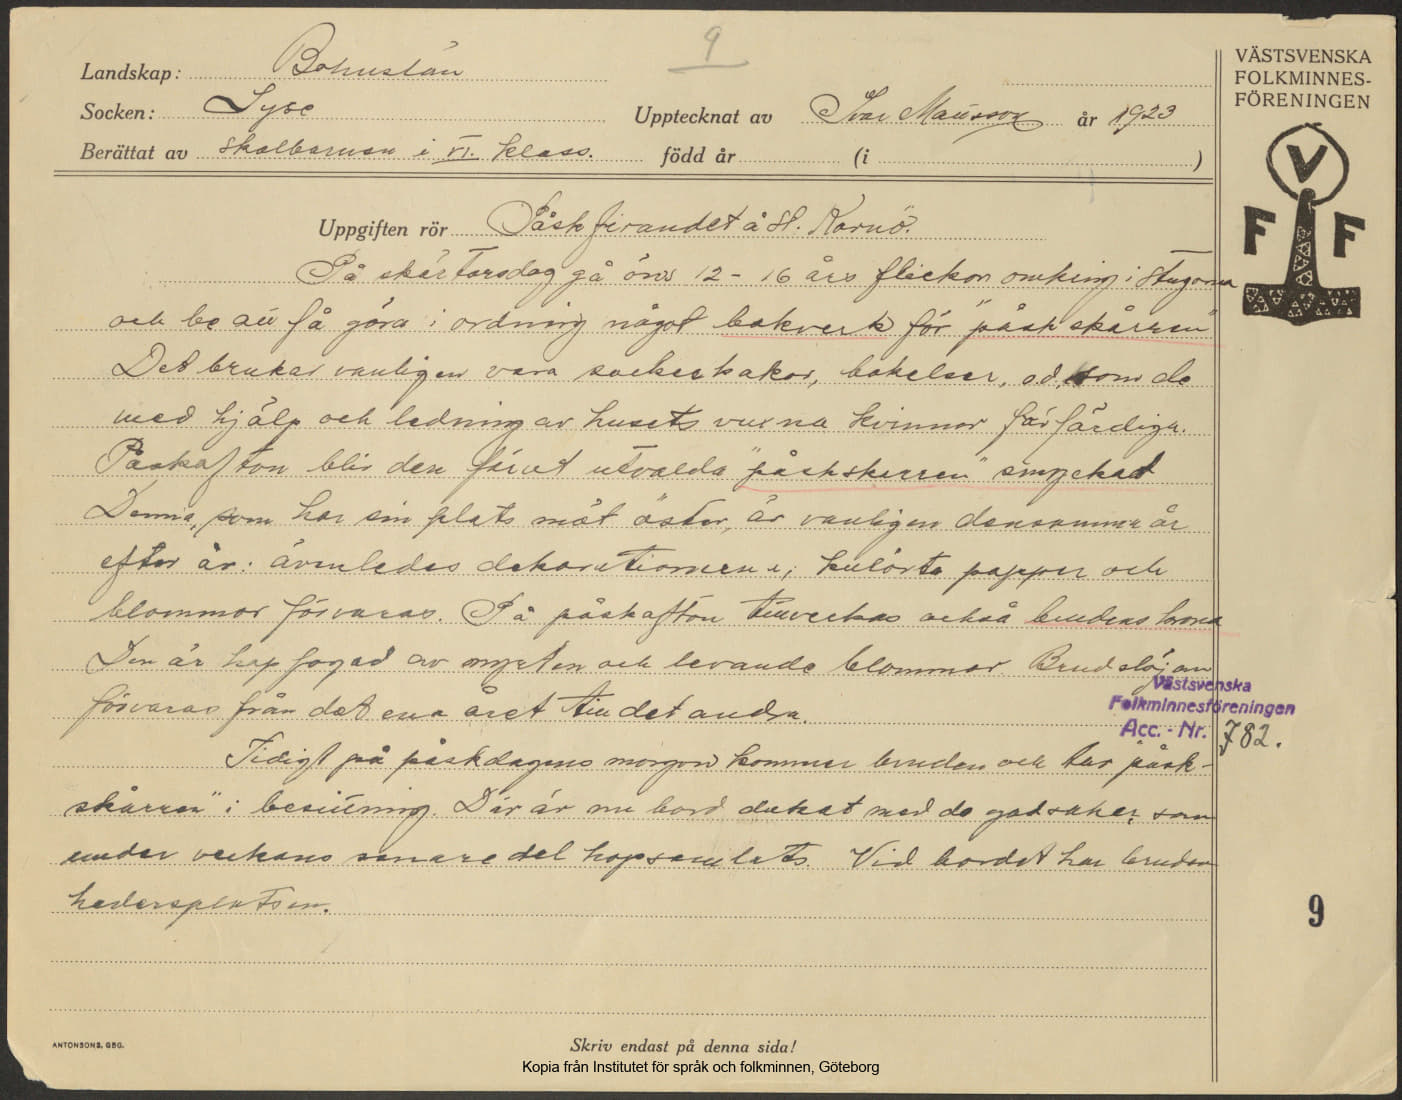 9
VÄSTSVENSKA
FOLKMINNES-
FÖRENINGEN
V
F F
Landskap: Bohuslän
Socken: Lyse Upptecknat av Ivar år 1923
Berättat av Skolbarnen i VI. klass. född år (i )
Uppgiften rör Påskfirandet å St. Kornö.
På skärtorsdag gå 12 - 16 års flickor omkring i stugorna
och be att få göra i ordning något bakverk för "påskskårren"
Det brukar vanligen vara sockerkakor, bakelser, o.d. som de
med hjälp och ledning av husets vuxna kvinnor får färdiga.
Påskafton blir den förut utvalda "påskskårren" smyckad
Denna, som har sin plats mot öster, är vanligen densamma år
efter år: ävenledes dekorationerna; kulörta papper och
blommor förvaras. På påskafton tillverkas också brudens krona
Den är hopfogad av myrten och levande blommor. Brudslöjan
förvaras från det ena året till det andra.
Västsvenska
Folkminnesföreningen
Acc. - Nr. 782.
Tidigt på påskdagens morgon kommer bruden och tar "påsk-
skårren" i besittning. Där är nu bord dukat med de godsaker, som
under veckans senare del hopsamlats. Vid bordet har bruden
hedersplatsen.
9
ANTONSONS, GBG.
Skriv endast på denna sida!
Kopia från Institutet för språk och folkminnen, Göteborg